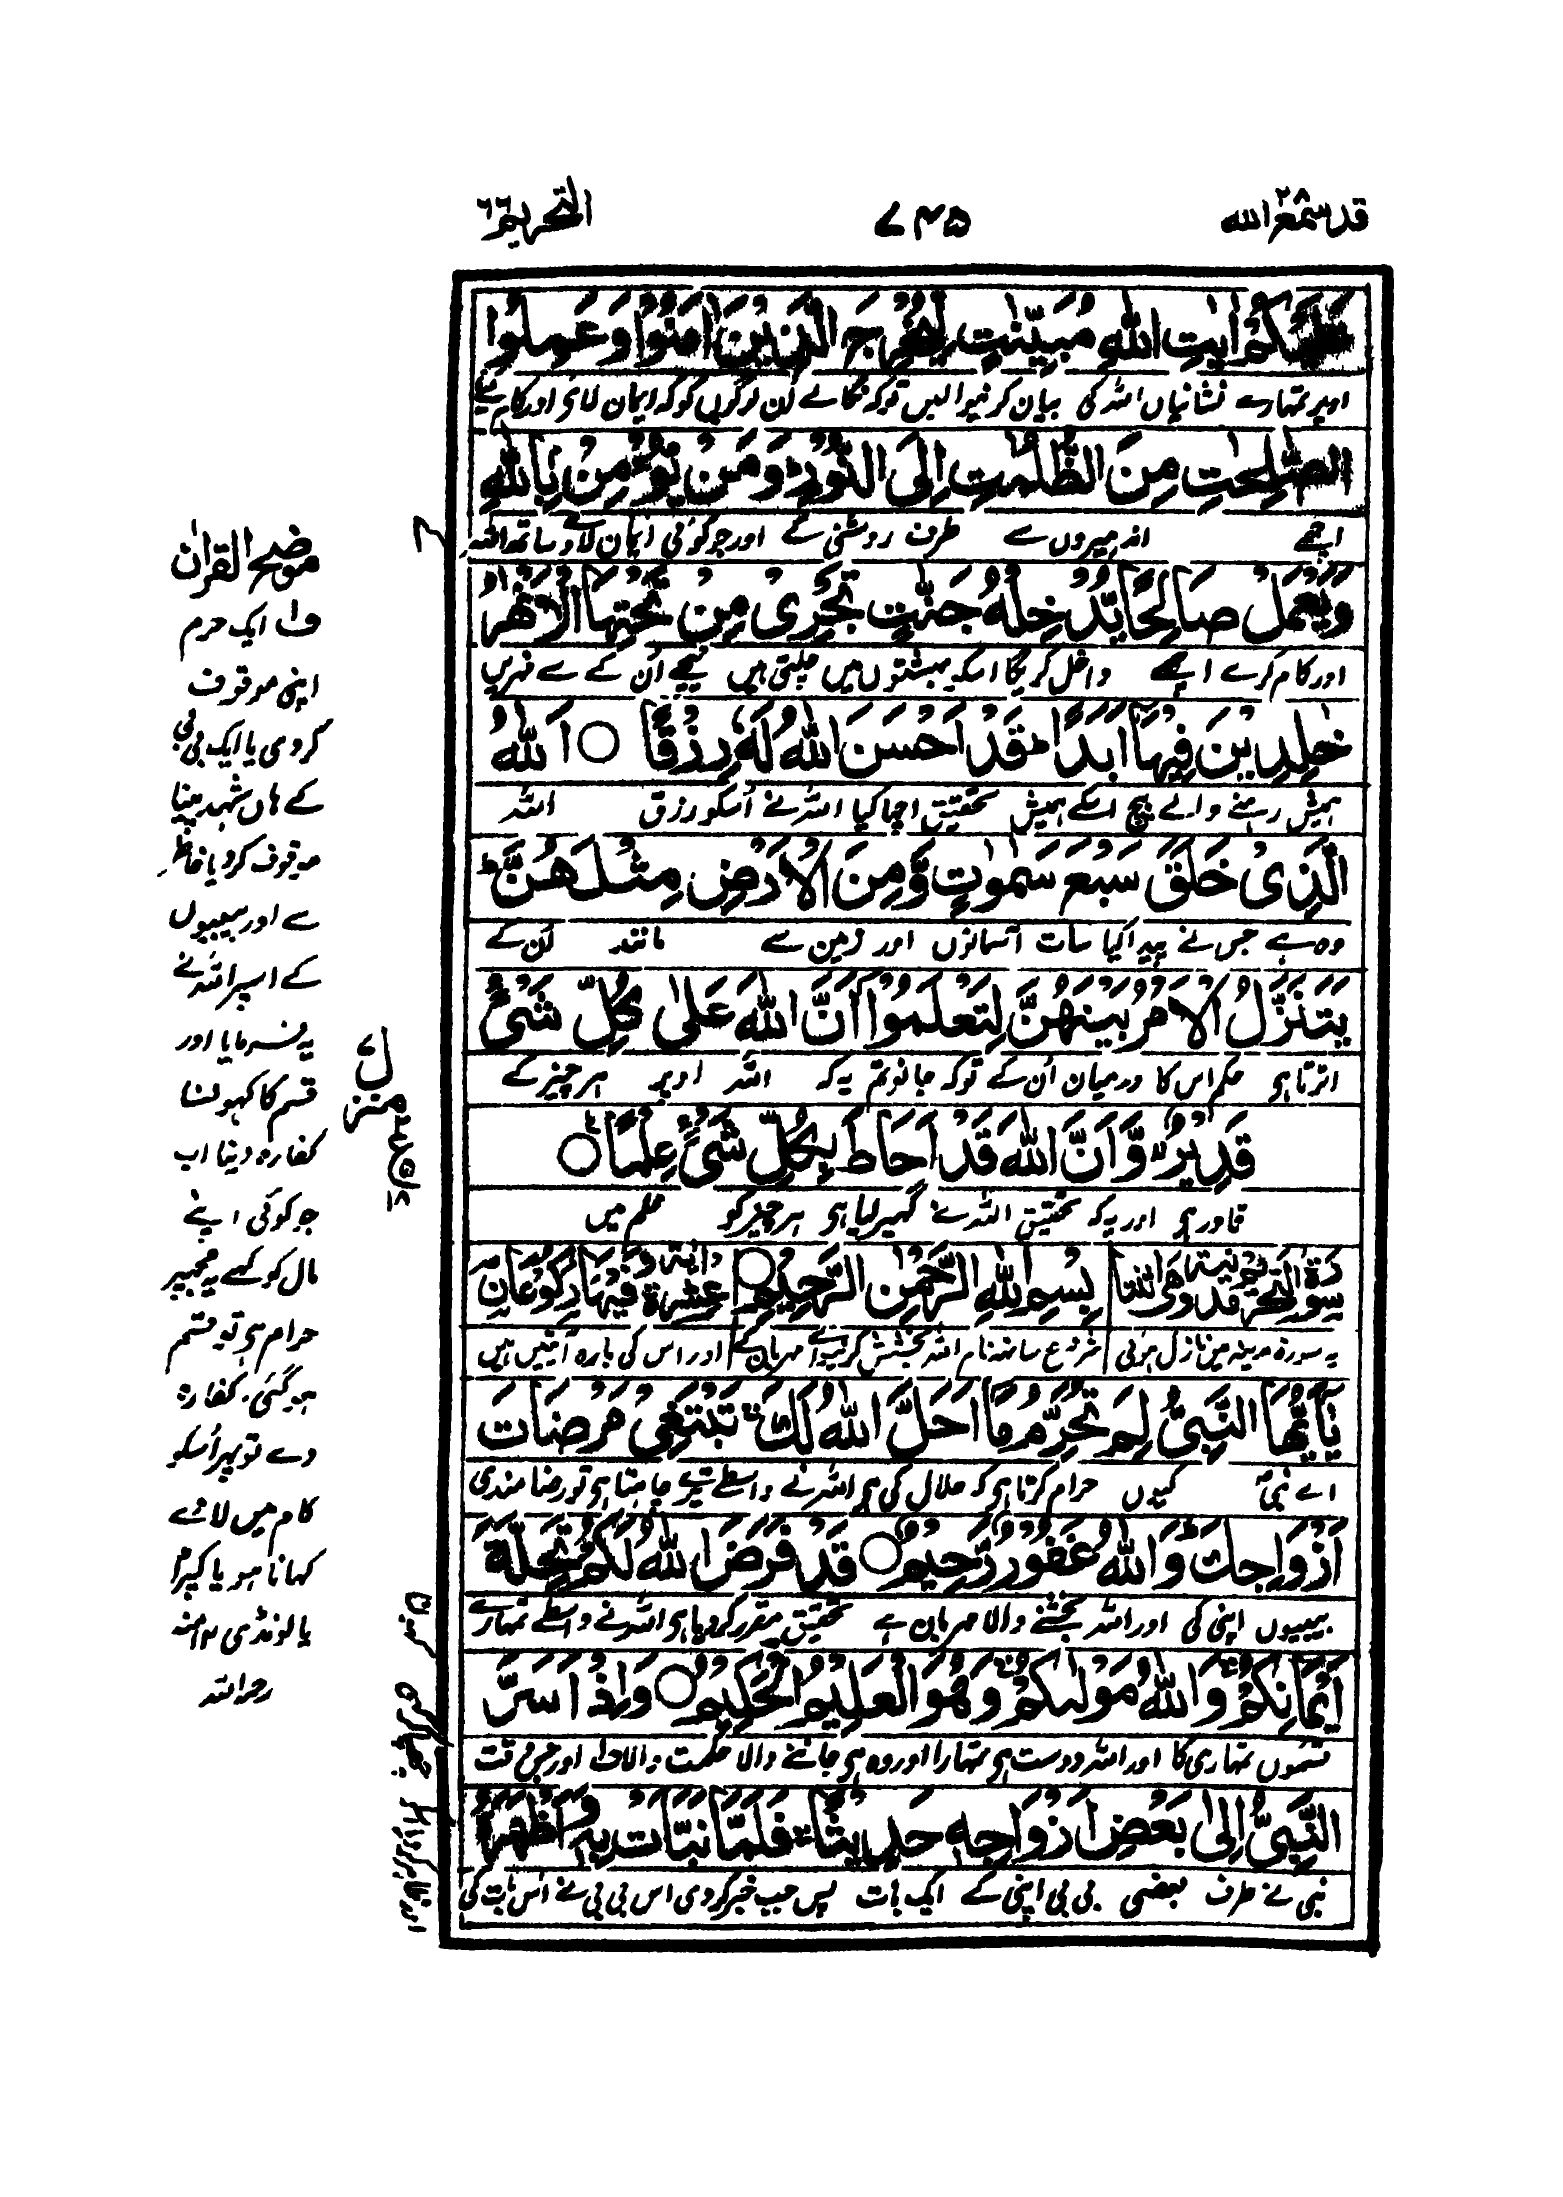 قد سمع الله ۲۸
۷۴۵
التحریم ۶۶
عَلَيْكُمْ اٰيٰتِ اللّٰهِ مُبَيِّنٰتٍ لِّيُخْرِجَ الَّذِيْنَ اٰمَنُوْا وَعَمِلُوا
اوپر تمہارے نشانیاں اللہ کی بیان کرنیوالیں توکہ نکالے اُن لوگوں کو کہ ایمان لائے اور کام کیے
الصّٰلِحٰتِ مِنَ الظُّلُمٰتِ اِلَى النُّوْرِ ط وَمَنْ يُّؤْمِنْ بِاللّٰهِ
اچھے اندھیروں سے طرف روشنی کے اور جو کوئی ایمان لاوے ساتھ اللہ
وَيَعْمَلْ صَالِحًا يُّدْخِلْهُ جَنّٰتٍ تَجْرِىْ مِنْ تَحْتِهَا الْاَنْهٰرُ
اور کام کرے اچھے داخل کریگا اسکو بہشتوں میں چلتی ہیں نیچے اُن کے سے نہریں
خٰلِدِيْنَ فِيْهَآ اَبَدًا ط قَدْ اَحْسَنَ اللّٰهُ لَهٗ رِزْقًا ○ اَللّٰهُ
ہمیش رہنے والے بیچ اسکے ہمیش تحقیق اچھا کیا اللہ نے اُسکو رزق اللہ
الَّذِىْ خَلَقَ سَبْعَ سَمٰوٰتٍ وَّمِنَ الْاَرْضِ مِثْلَهُنَّ ط
وہ ہے جس نے پیدا کیا سات آسمانوں اور زمین سے مانند اُن کے
يَتَنَزَّلُ الْاَمْرُ بَيْنَهُنَّ لِتَعْلَمُوْٓا اَنَّ اللّٰهَ عَلٰى كُلِّ شَىْءٍ
اترتا ہی حکم اس کا درمیان اُن کے توکہ جانو تم یہ کہ اللہ اوپر ہر چیز کے
قَدِيْرٌ وَّاَنَّ اللّٰهَ قَدْ اَحَاطَ بِكُلِّ شَىْءٍ عِلْمًا ○
قادر ہی اور یہ کہ تحقیق اللہ نے گھیر لیا ہی ہر چیز کو علم میں
سورة التحريم مدنية وهى اثنتا بِسْمِ اللّٰهِ الرَّحْمٰنِ الرَّحِيْمِ ○ عشرة اٰية وفيها ركوعان
یہ سورۃ مدینہ میں نازل ہوئی شروع ساتھ نام اللہ بخشش کرنیوالے مہربان کے اور اس کی بارہ آیتیں ہیں
يٰٓاَيُّهَا النَّبِىُّ لِمَ تُحَرِّمُ مَآ اَحَلَّ اللّٰهُ لَكَ تَبْتَغِىْ مَرْضَاتَ
اے نبی کیوں حرام کرتا ہی کہ حلال کی ہی اللہ نے واسطے تیرے چاہتا ہی تو رضامندی
اَزْوَاجِكَ ط وَاللّٰهُ غَفُوْرٌ رَّحِيْمٌ ○ قَدْ فَرَضَ اللّٰهُ لَكُمْ تَحِلَّةَ
بیبیوں اپنی کی اور اللہ بخشنے والا مہربان ہے تحقیق مقرر کر دیا ہی اللہ نے واسطے تمہارے
اَيْمَانِكُمْ وَاللّٰهُ مَوْلٰىكُمْ وَهُوَ الْعَلِيْمُ الْحَكِيْمُ ○ وَاِذْ اَسَرَّ
قسموں تمہاری کا اور اللہ دوست ہی تمہارا اور وہ ہی جاننے والا حکمت والا ف۱ اور جس وقت
النَّبِىُّ اِلٰى بَعْضِ اَزْوَاجِهٖ حَدِيْثًا فَلَمَّا نَبَّاَتْ بِهٖ وَاَظْهَرَهُ
نبی نے طرف بعضی بی بی اپنی کے ایک بات پس جب خبر کر دی اس بی بی نے اس بات کی
موضح القرآن
ف۱ ایک حرم
اپنی موقوف
کردی یا ایک بی بی
کے ہاں شہد پینا
موقوف کردیا خاطر
سے اور بیبیوں
کے اسپر اللہ نے
یہ فرمایا اور
قسم کا کھولنا
کفارہ دینا اب
جو کوئی اپنے
مال کو کہے یہ مجھپر
حرام ہی تو قسم
ہو گئی. کفارہ
دے تو پھر اُسکو
کام میں لائے
کھانا ہو یا کپڑا
یا لونڈی ۱۲ منہ
رحمہ اللہ
منزل ۷